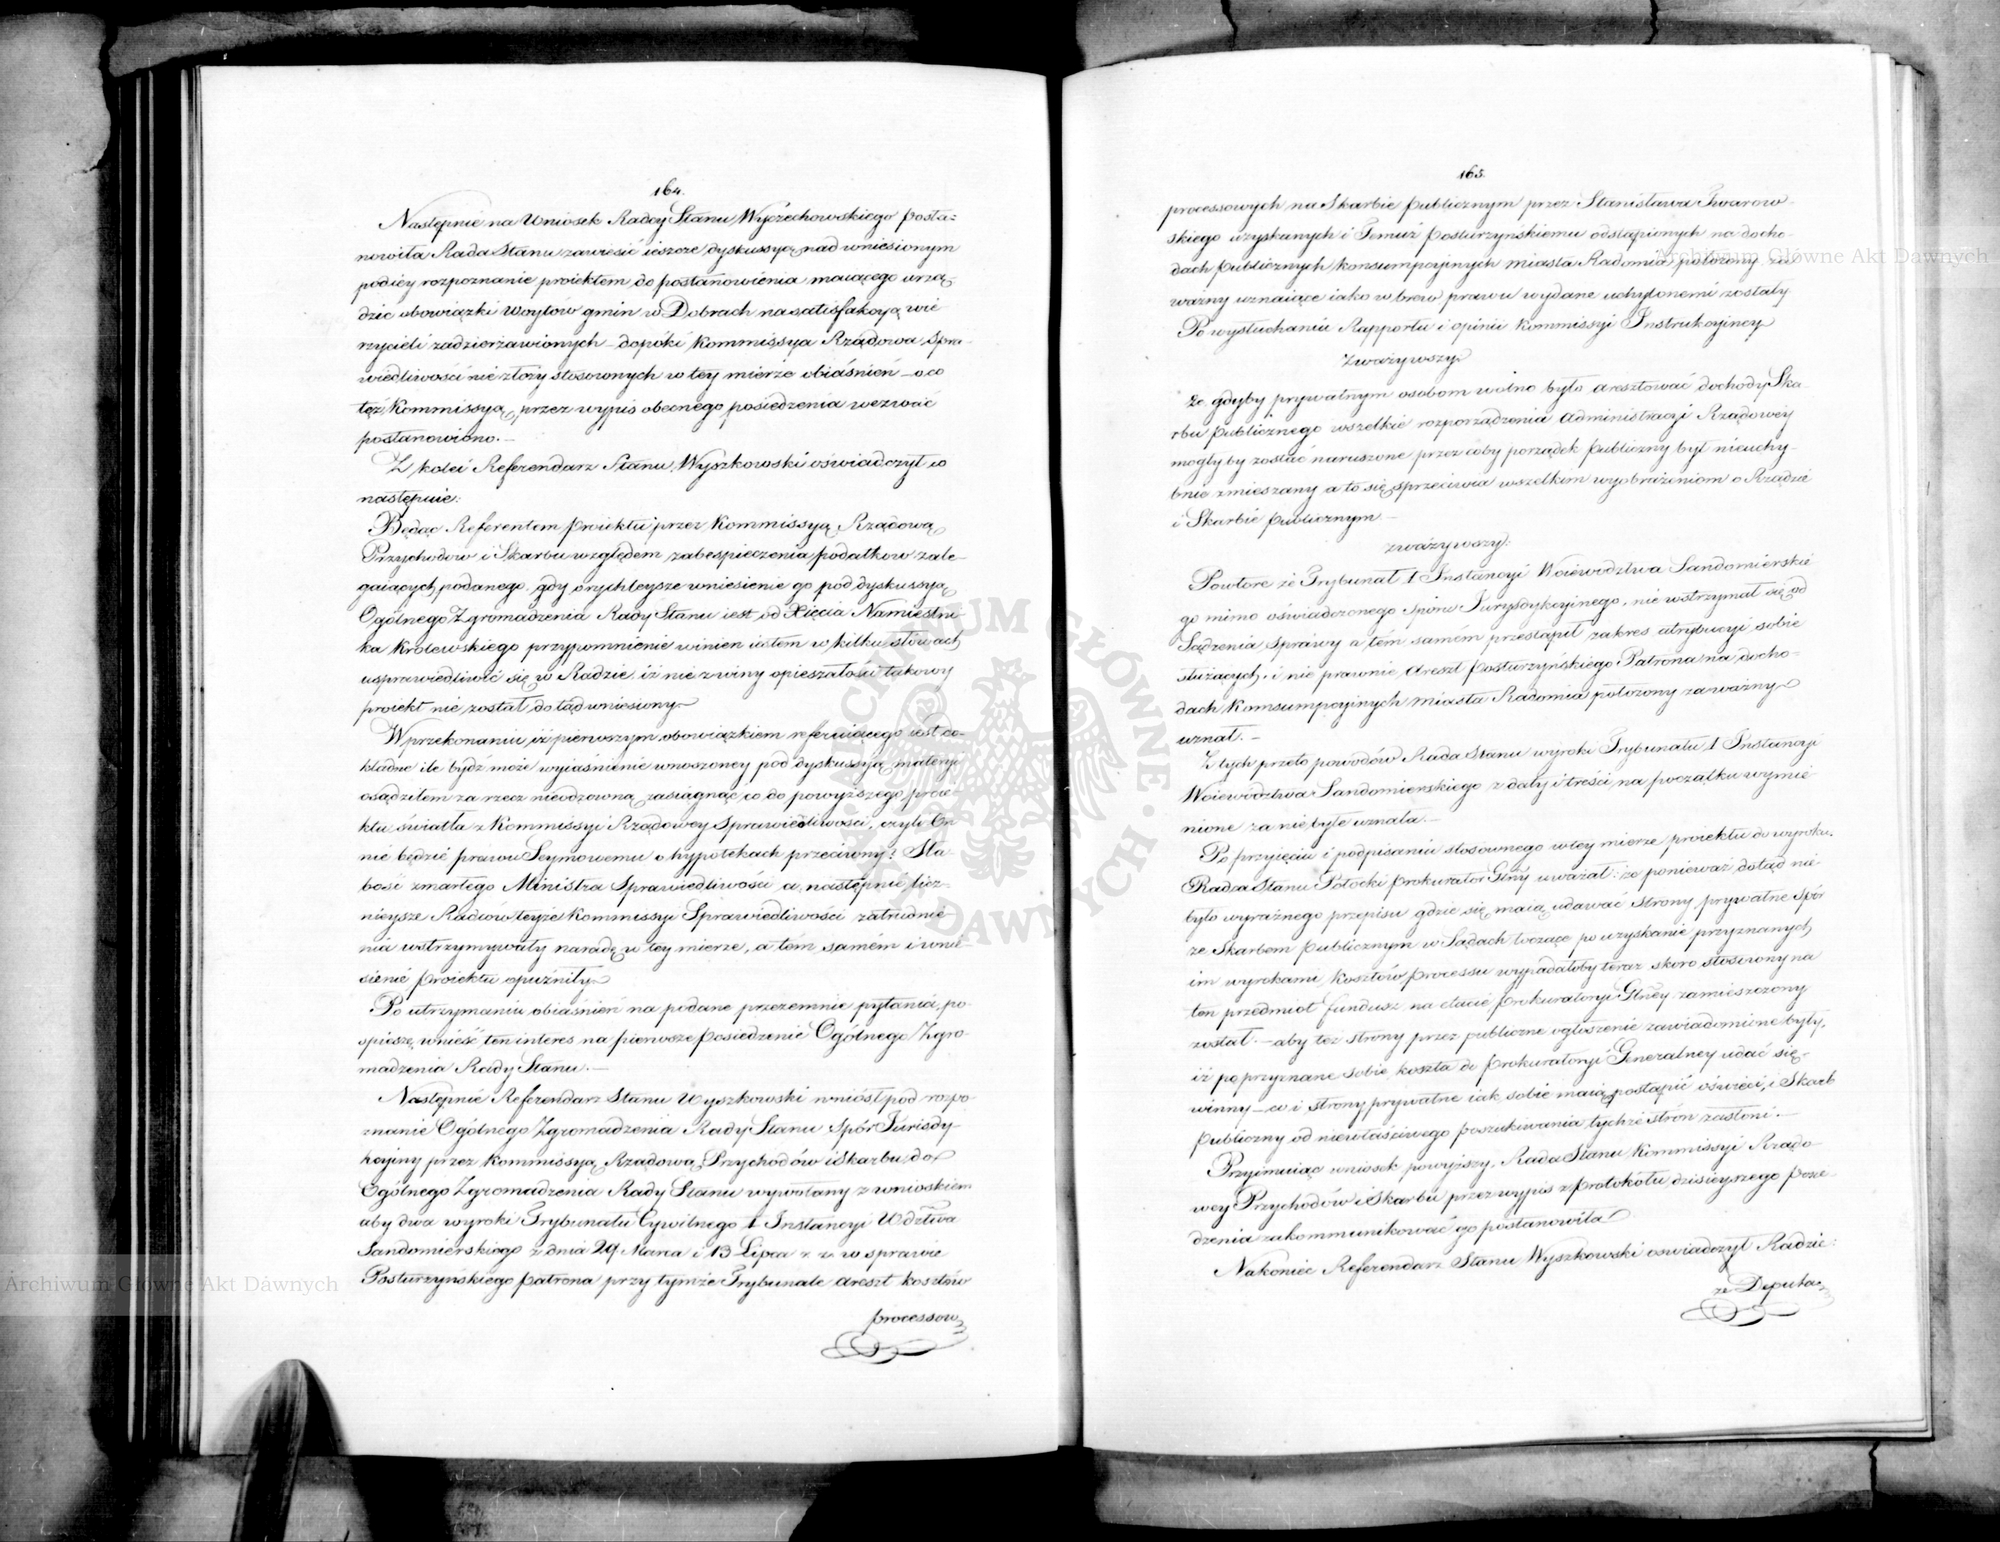 164.
Następnie na Wniosek Radcy Stanu Wyczechowskiego posta=
nowiła Rada Stanu zawiesić ieszcze dyskussyą nad wniesionym
pod iey rozpoznanie proiektem do postanowienia maiącego urzą=
dzić obowiązki Woytów gmin w Dobrach na satisfakcyą wie
rzycieli zadzierżawionych – dopóki Kommissya Rządowa Spra-
wiedliwości nie złoży stosownych w tey mierze obiaśnień – o co
też Kommissyą przez wypis obecnego posiedzenia wezwać
postanowiono. –
Z kolei Referendarz Stanu Wyszkowski oświadczył co
następuie:
Będąc Referentem proiektu przez Kommissyą Rządową
Przychodów i Skarbu względem zabespieczenia podatkow zale-
gaiących podanego, gdy o rychleysze wniesienie go pod dyskussyą
Ogólnego Zgromadzenia Rady Stanu iest od Xięcia Namiestni-
ka Królewskiego przypomnienie winien iestem w kilku słowach
usprawiedliwić się w Radzie, iż nie z winy opieszałości takowy
proiekt nie został dotąd wniesiony.
W przekonaniu iż pierwszym obowiązkiem referuiącego iest do-
kładne ile bydź może wyiaśnienie wnoszoney pod dyskussyą materyi
osądziłem za rzecz nieodzowną zasiągnąć co do powyższego proie-
ktu światła z Kommissyi Rządowey Sprawiedliwości, czyli On
nie będzie prawu Seymowemu o hypotekach przeciwny? Sła-
bość zmarłego Ministra Sprawiedliwości a następnie licz-
nieysze Radców teyże Kommissyi Sprawiedliwości zatrudnie
nia wstrzymywały naradę w tey mierze, a tém samém i wnie-
sienie proiektu opuźniły.
Po utrzymaniu obiaśnień na podane przezemnie pytania, po-
spieszę wnieść ten interes na pierwsze posiedzenie Ogólnego Zgro-
madzenia Rady Stanu. –
Następnie Referendarz Stanu Wyszkowski wniósł pod rozpo-
znanie Ogólnego Zgromadzenia Rady Stanu Spór Jurisdy-
kcyiny przez Kommissyą Rządową Przychodów i Skarbu do
Ogólnego Zgromadzenia Rady Stanu wywołany z wnioskiem
aby dwa wyroki Trybunału Cywilnego 1 Instancyi Wdztwa
Sandomierskiego z dnia 29 Marca i 13 Lipca r. z. w sprawie
Posturzyńskiego patrona przy tymże Trybunale areszt kosztów
processow
165.
processowych na Skarbie publicznym przez Stanisława Twarow-
skiego uzyskanych i Temuż Posturzyńskiemu odstąpionych na docho-
dach publicznych konsumpcyinych miasta Radomia położony, za
ważny uznaiące iako wbrew prawu wydane uchylonemi zostały
Po wysłuchaniu Rapportu i opinii Kommissyi Instrukcyiney
Zważywszy
że gdyby prywatnym osobom wolno było aresztować dochody Ska-
rbu publicznego wszelkie rozporządzenia Administracyi Rządowey
mogłyby zostać naruszone przez coby porządek publiczny był nieuchy-
bnie zmieszany a to się sprzeciwia wszelkim wyobrażeniom o Rządzie
i Skarbie publicznym –
zważywszy:
Powtóre że Trybunał 1 Instancyi Woiewództwa Sandomierskie
go mimo oświadczonego sporu Jurysdykcyinego, nie wstrzymał się od
Sądzenia Sprawy a tém samém przestąpił zakres atrybucyi sobie
służących, i nie prawnie areszt Posturzyńskiego Patrona na docho-
dach Komsumpcyinych miasta Radomia położony za ważny
uznał. –
Z tych przeto powodów Rada Stanu wyroki Trybunału 1 Instancyi
Woiewództwa Sandomierskiego z daty i treści na początku wymie
nione za niebyłe uznała. –
Po przyięciu i podpisaniu stosownego w tey mierze proiektu do wyroku,
Radca Stanu Potocki Prokurator Glny uważał: że ponieważ dotąd nie
było wyraźnego przepisu gdzie się maią udawać Strony prywatne Spór
ze Skarbem publicznym w Sądach toczące po uzyskanie przyznanych
im wyrokami kosztów processu wypadałoby teraz skoro stosowny na
ten przedmiot fundusz na etacie Prokuratoryi Glney zamieszczony
został. – aby też strony przez publiczne ogłoszenie zawiadomione były,
iż po przyznane sobie koszta do Prokuratoryi Generalney udać się
winny – co i strony prywatne iak sobie maią postąpić oświeci, i Skarb
publiczny od niewłaściwego poszukiwania tychże stron zasłoni. –
Przyimuiąc wniosek powyższy, Rada Stanu Kommissyi Rządo-
wey Przychodów i Skarbu przez wypis z protokółu dzisieyszego posie-
dzenia zakommunikować go postanowiła
Nakoniec Referendarz Stanu Wyszkowski oświadczył Radzie:
że Deputa=
Archiwum Główne Akt Dawnych
Archiwum Główne Akt Dawnych
ARCHIWUM GŁÓWNE AKT DAWNYCH